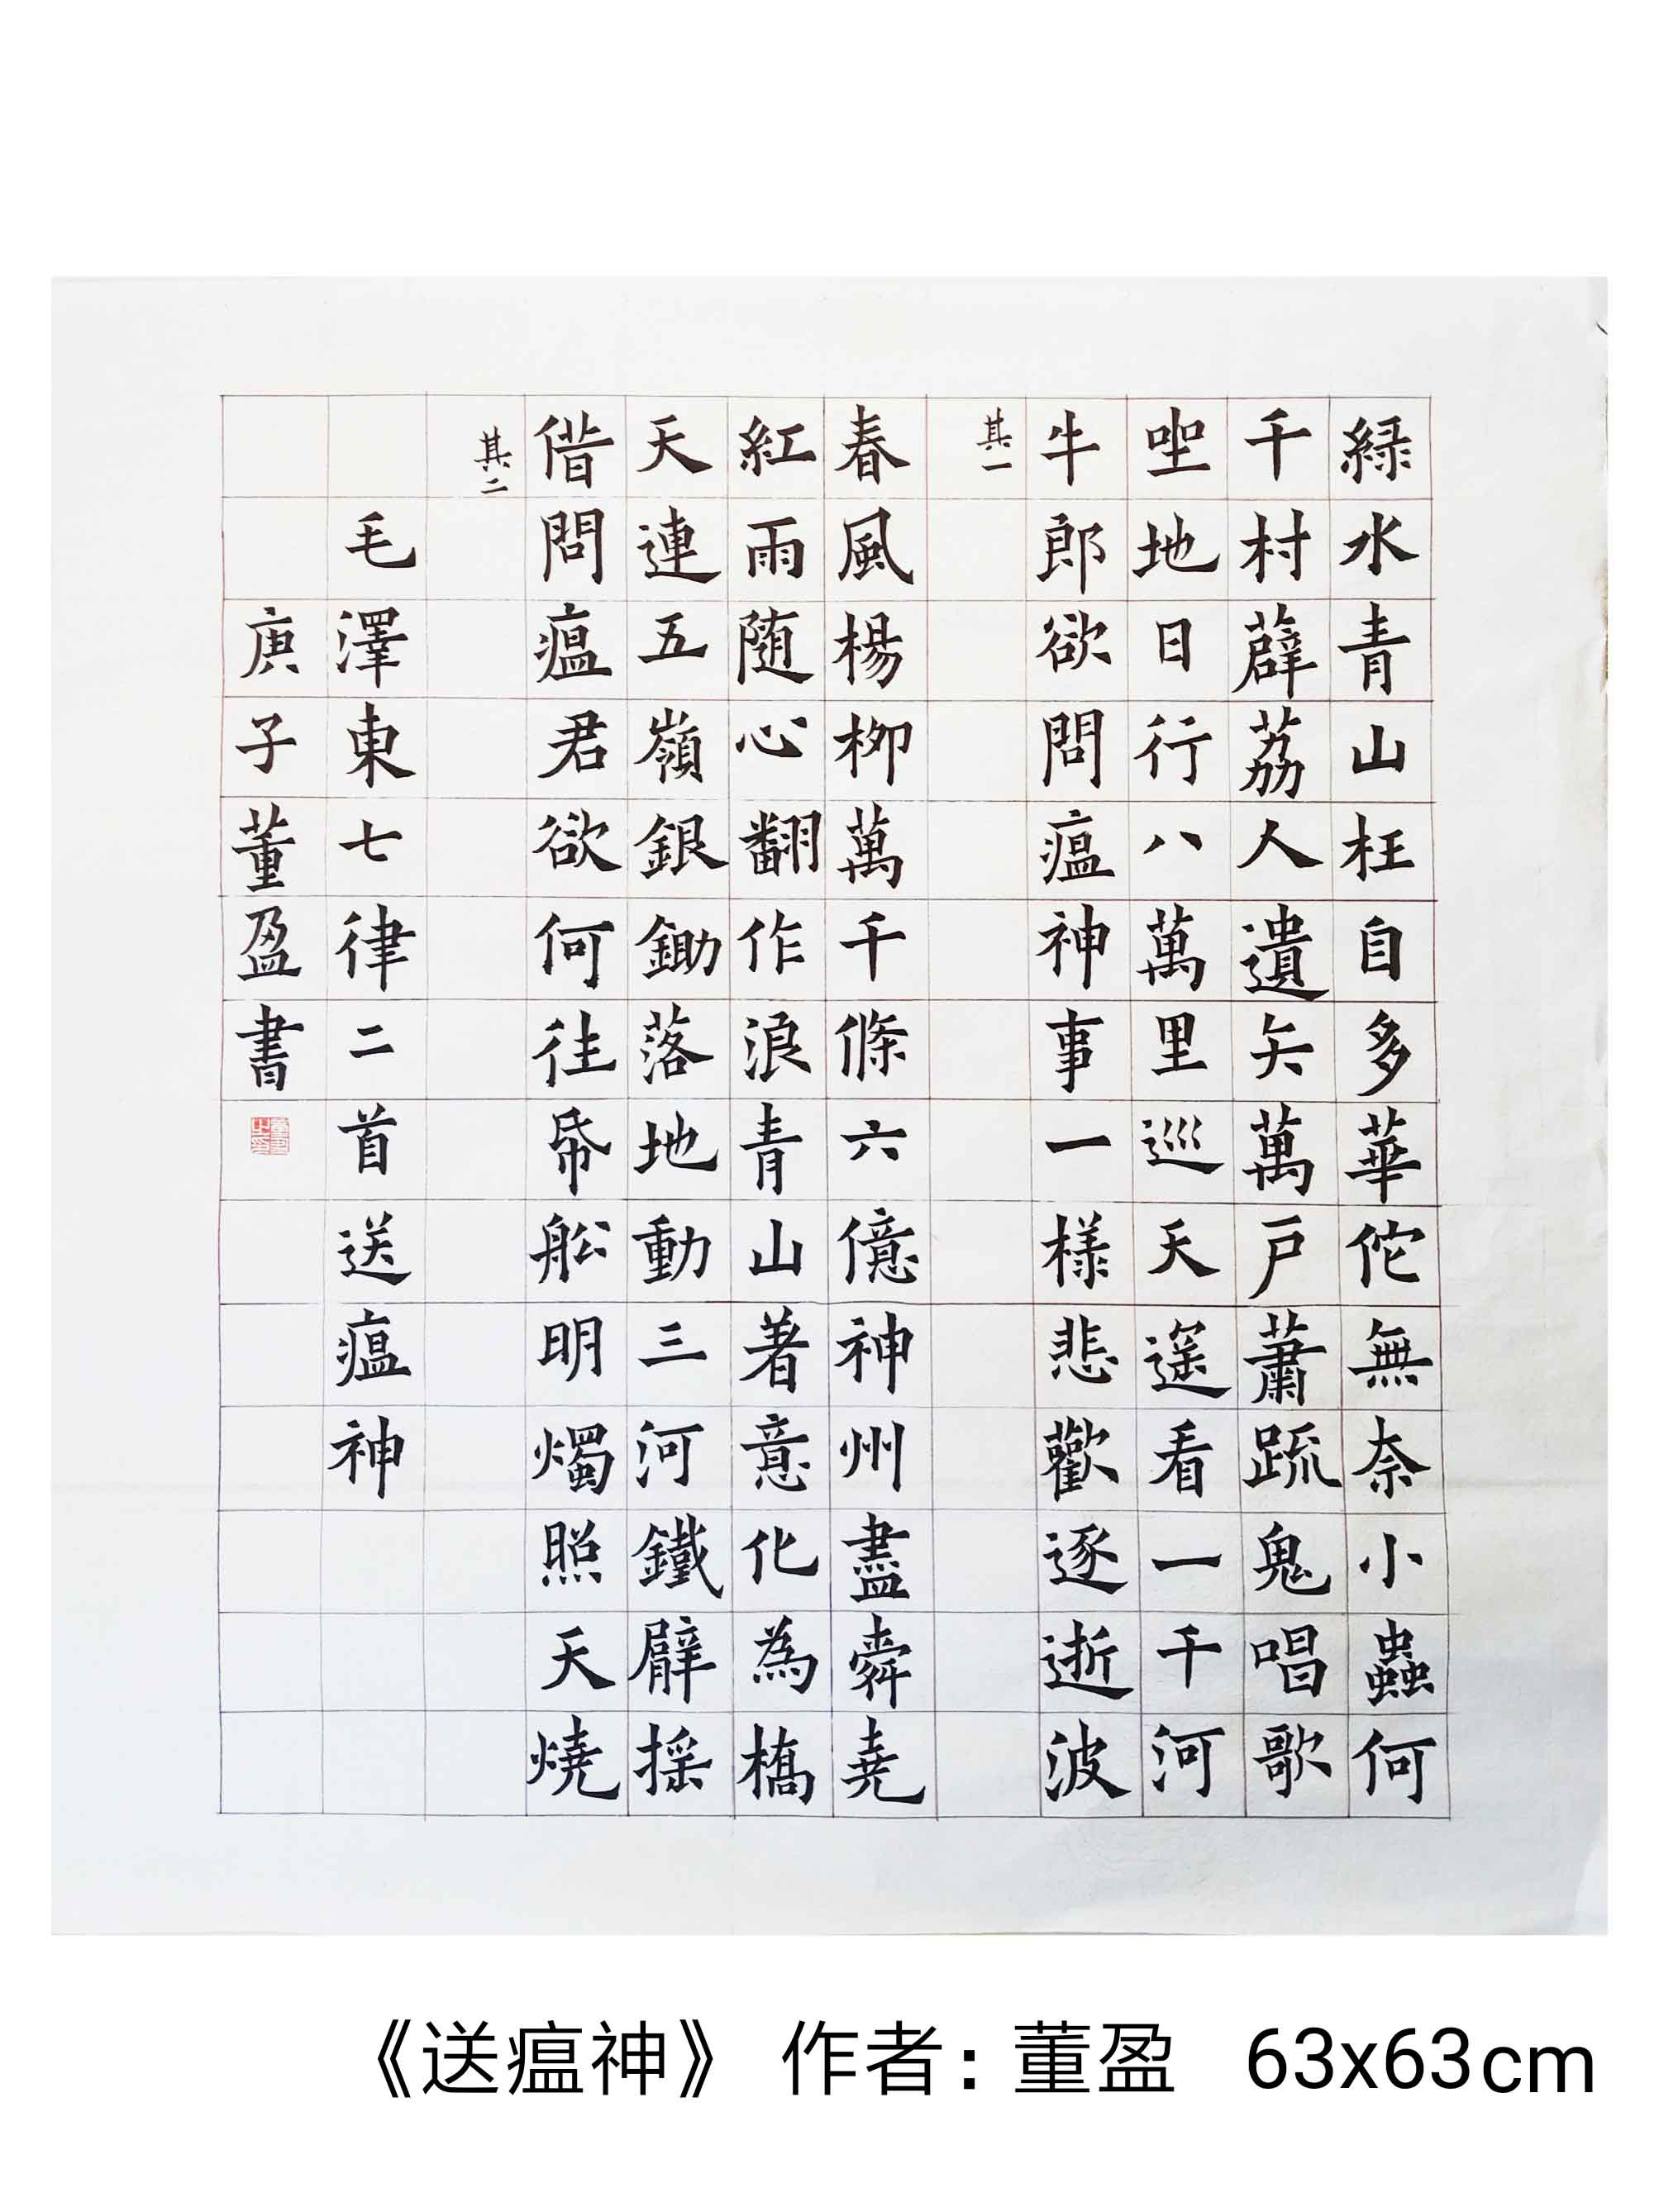 緑水青山枉自多華佗無奈小蟲何
千村薜荔人遺矢萬戸蕭疏鬼唱歌
坐地日行八萬里巡天遥看一千河
牛郎欲問瘟神事一樣悲歡逐逝波
其一
春風楊柳萬千條六億神州盡舜堯
紅雨随心翻作浪青山著意化為橋
天連五嶺銀鋤落地動三河鐵臂摇
借問瘟君欲何往帋船明燭照天燒
其二
毛澤東七律二首送瘟神
庚子董盈書
《送瘟神》 作者：董盈 63x63cm